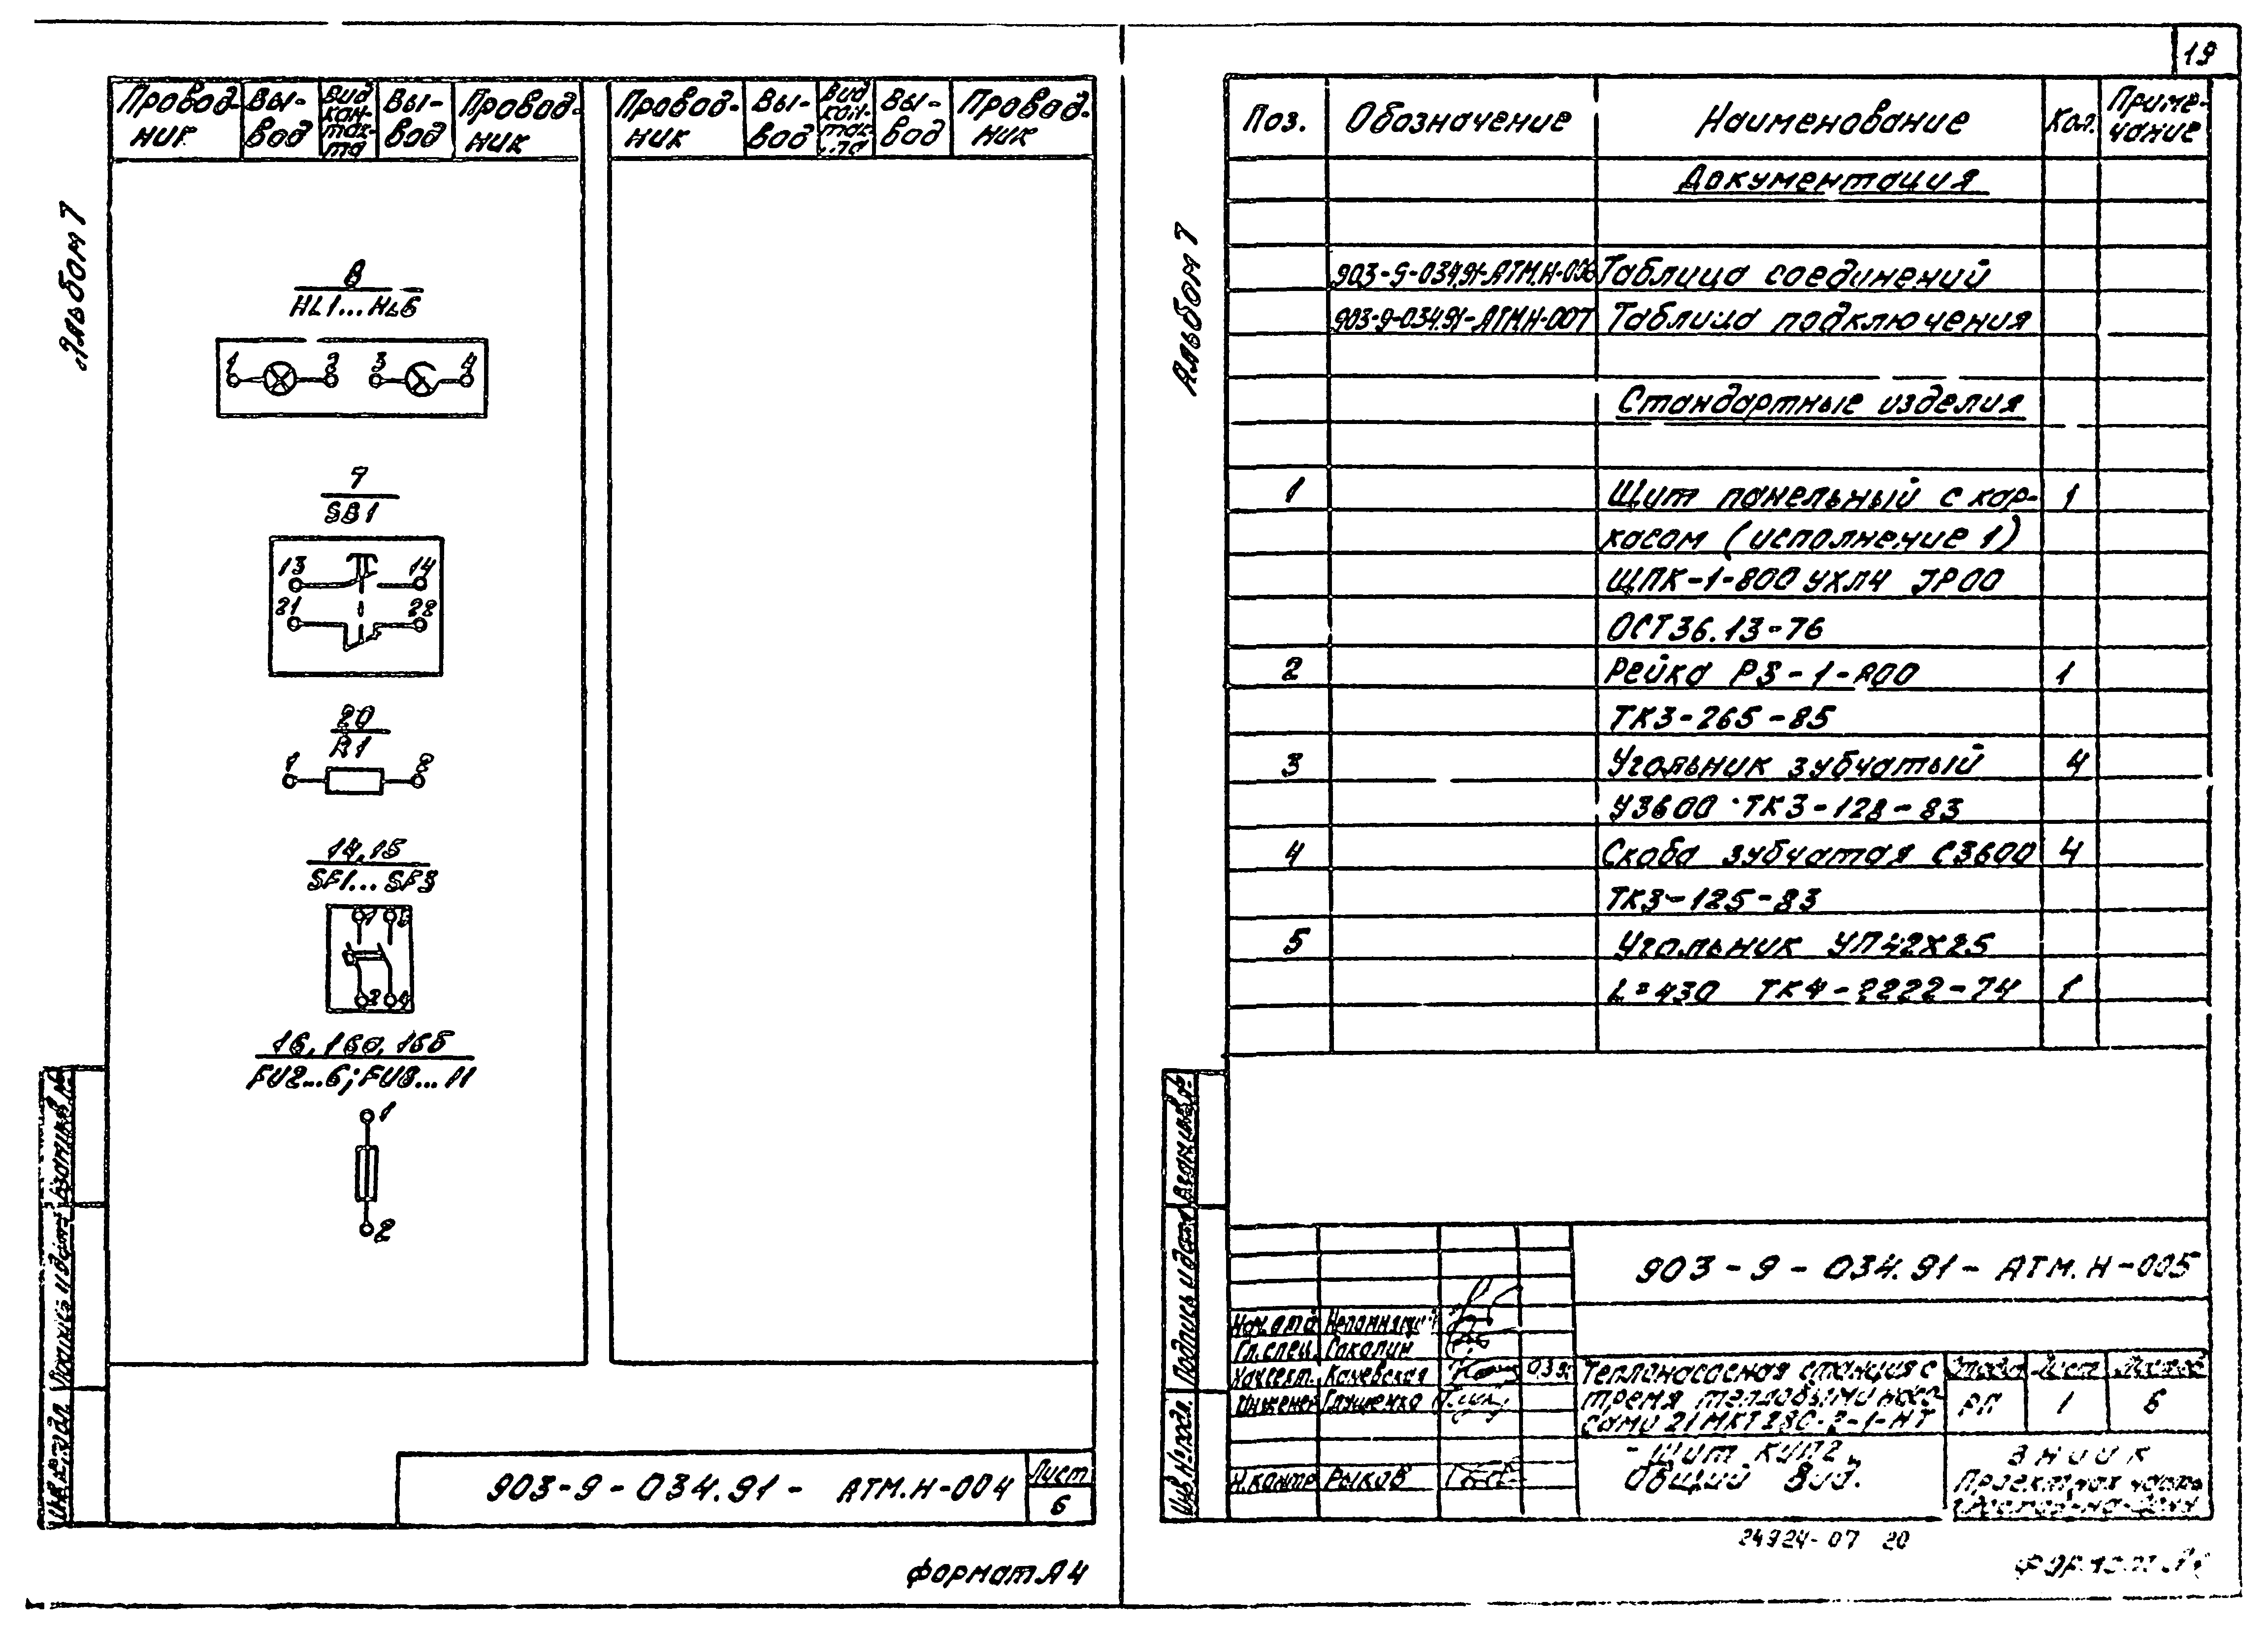 19
Альбом 7
Провод-ник Вы-вод Вид кон-так-та Вы-вод Провод-ник
Провод-ник Вы-вод Вид кон-так-та Вы-вод Провод-ник
8
HL1...HL6
1 2 3 4
7
SB1
13 14
21 22
20
R1
1 2
14,15
SF1...SF3
1 3
2 4
16, 16а, 16б
FU2...6; FU8...11
1
2
Взам.инв.№
Подпись и дата
Инв.№ подл.
903-9-034.91- АТМ.Н-004
Лист
6
Формат А4
Альбом 7
Поз. Обозначение Наименование Кол. Приме-чание
Документация
903-9-034.91-АТМ.Н-006 Таблица соединений
903-9-034.91-АТМ.Н-007 Таблица подключения
Стандартные изделия
1 Щит панельный с кар- 1
касом (исполнение 1)
ЩПК-1-800 УХЛ4 IP00
ОСТ36.13-76
2 Рейка РЗ-1-800 1
ТК3-265-85
3 Угольник зубчатый 4
УЗ600 ТК3-128-83
4 Скоба зубчатая СЗ600 4
ТК3-125-83
5 Угольник УП42Х25
L=430 ТК4-2222-74 1
Взам.инв.№
Подпись и дата
Инв.№ подл.
903-9-034.91-АТМ.Н-005
Нач.отд Непомнящий
Гл.спец. Соколин
Нач.сект. Каневская
Инженер Глущенко
Н.контр Рыков
Теплонасосная станция с
тремя тепловыми насо-
сами 21МКТ280-2-1-НТ
Стадия Лист Листов
РП 1 6
Щит КИП2.
Общий вид.
ЗНИИК
Проектная часть
г.Ростов-на-Дону
24924-07 20
Формат А4